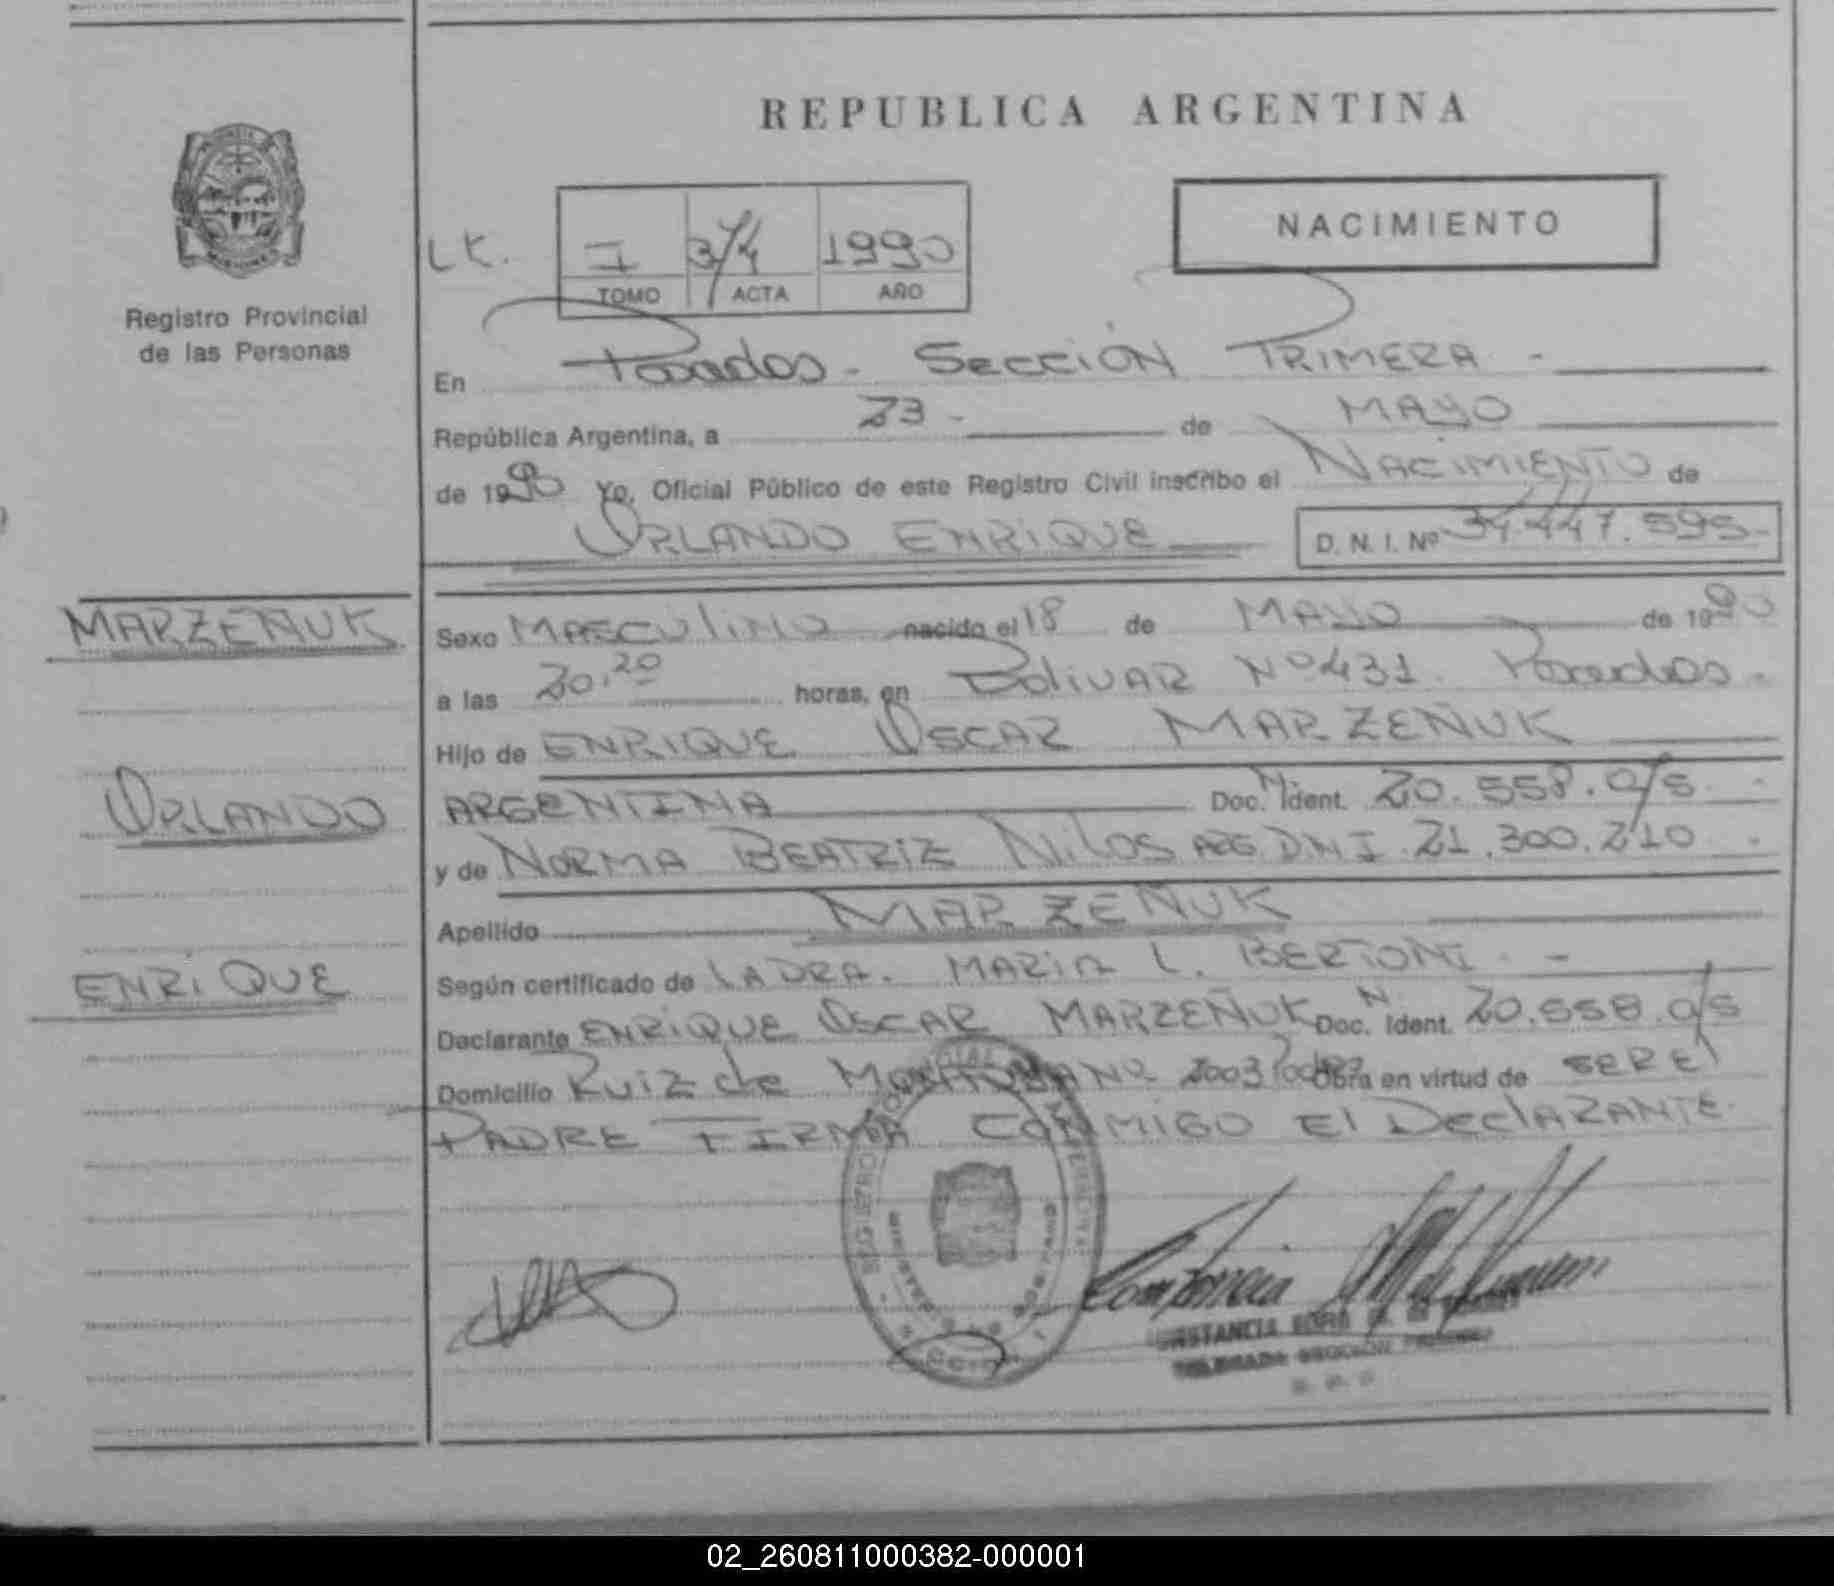 REPUBLICA ARGENTINA
NACIMIENTO
LK. I 1990
TOMO ACTA AÑO
Registro Provincial
de las Personas
En Posadas - SECCIÓN PRIMERA -
República Argentina, a 23 - de MAYO
de 1990 Yo, Oficial Público de este Registro Civil inscribo el NACIMIENTO de
ORLANDO ENRIQUE D. N. I. Nº 34.447.595-
MARZEÑUK
Sexo MASCULINO nacido el 18 de MAYO de 1990
a las 20,20 horas, en BOLIVAR Nº 431. Posadas -
Hijo de ENRIQUE OSCAR MARZEÑUK
ORLANDO
ARGENTINA Doc. N. Ident. 20.558.
y de NORMA BEATRIZ ARG. D.N.I. 21.300.210 -
Apellido MARZEÑUK
ENRIQUE
Según certificado de LA DRA. MARIA L. BERTONI. -
Declarante ENRIQUE OSCAR MARZEÑUK Doc. N. Ident. 20.558.
Domicilio RUIZ de Nº 2003 Obra en virtud de SER El
PADRE FIRMA CONMIGO El DEClARANTE.
02_260811000382-000001